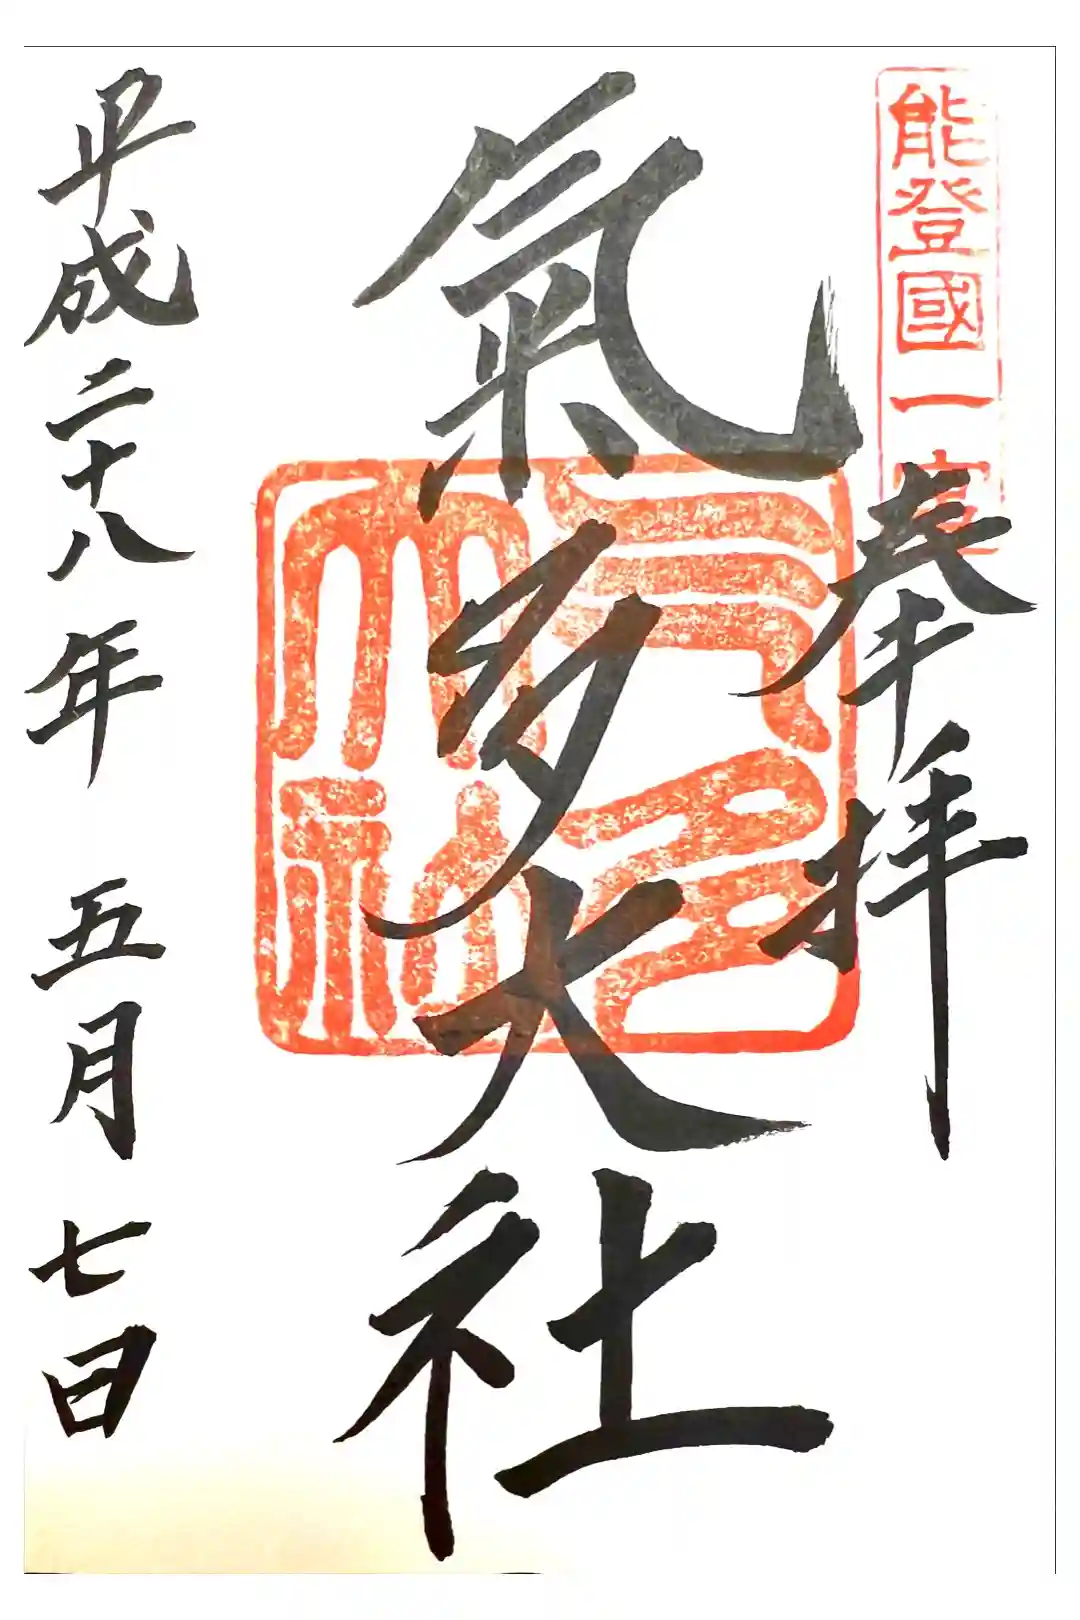 能登國一宮
奉拝
氣多大社
氣多大社
平成二十八年 五月 七日